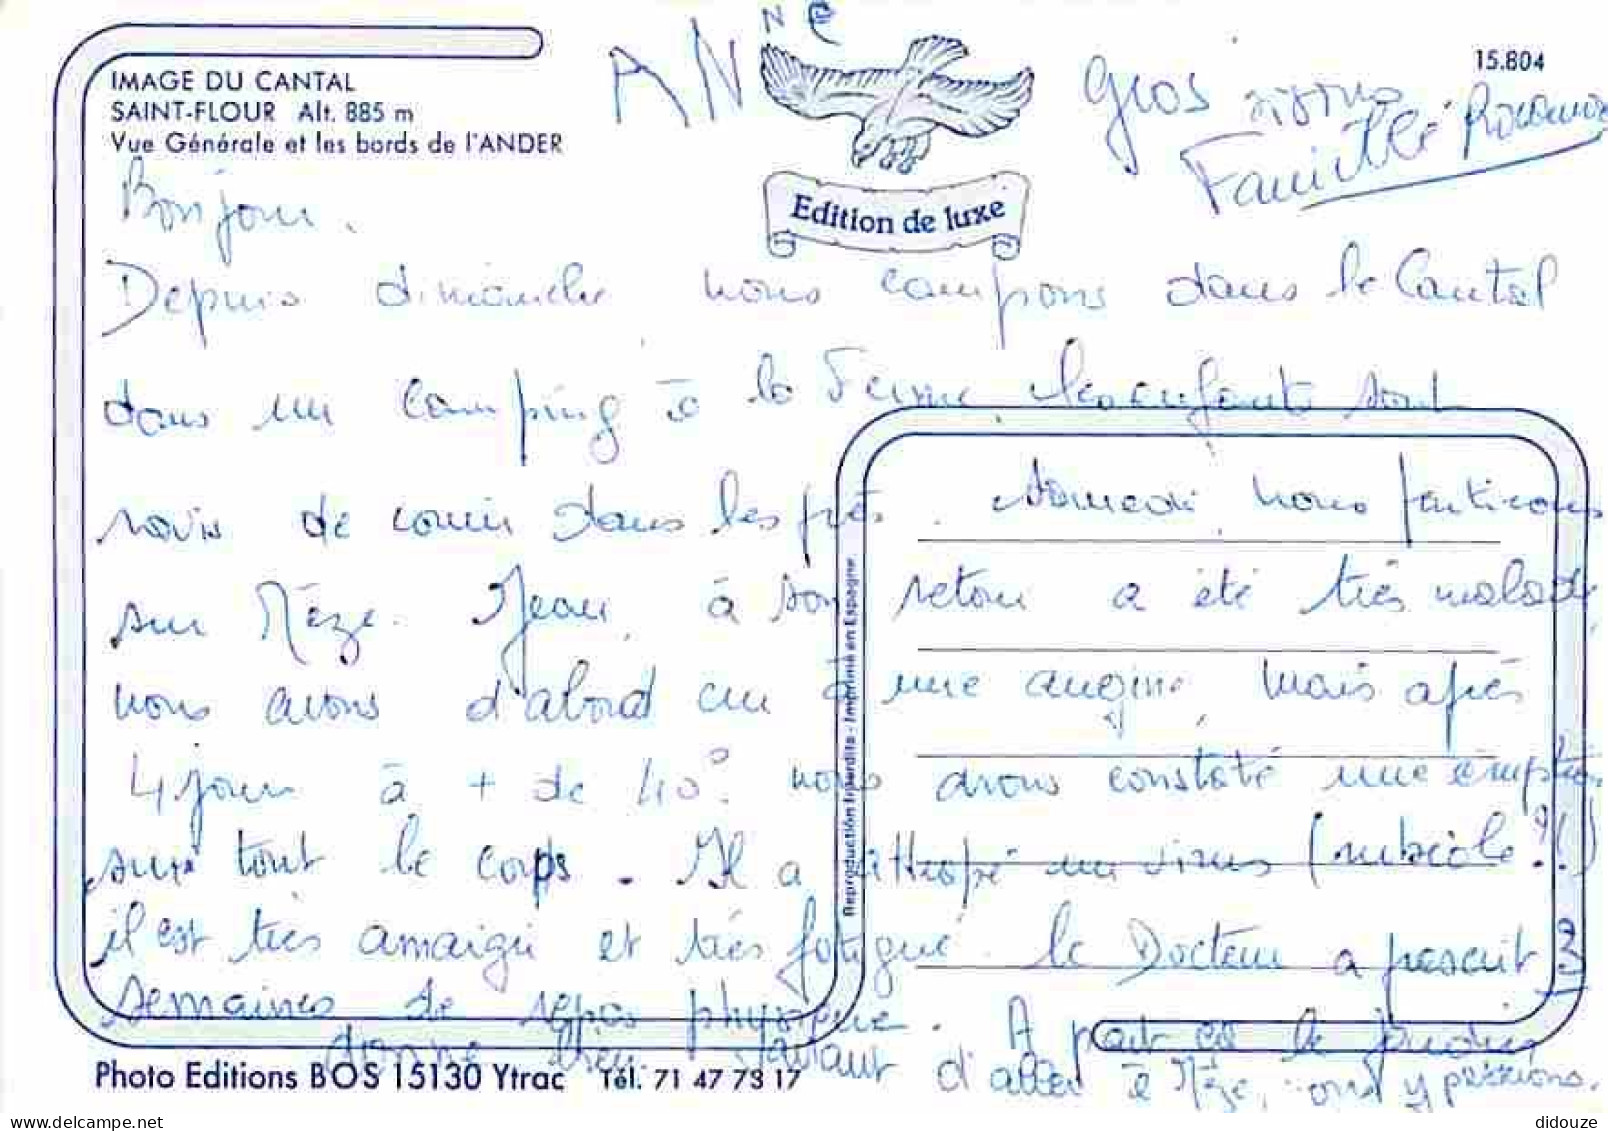 ANNE
15.804
IMAGE DU CANTAL
SAINT-FLOUR Alt. 885 m
Vue Générale et les bords de l'ANDER
Gros bisous
Famille
Edition de luxe
Bonjour.
Depuis dimanche nous campons dans le Cantal
dans un camping à la Ferme, les enfants sont
ravis de courir dans les prés. Samedi, nous partirons
sur Mèze. Jean, à son retour a été très malade,
nous avons d'abord cru à une angine, mais après
4 jours à + de 40° nous avons constaté une éruption
sur tout le corps. Il a attrapé un virus (rubéole ?!)
il est très amaigri et très fatigué. le Docteur a prescrit 3
semaines de repos physique. A part ça le jardin
donne bien. avant d'aller à Mèze, on y passions.
Reproduction Interdite - Imprimé en Espagne
Photo Editions BOS 15130 Ytrac Tél. 71 47 73 17
didouze